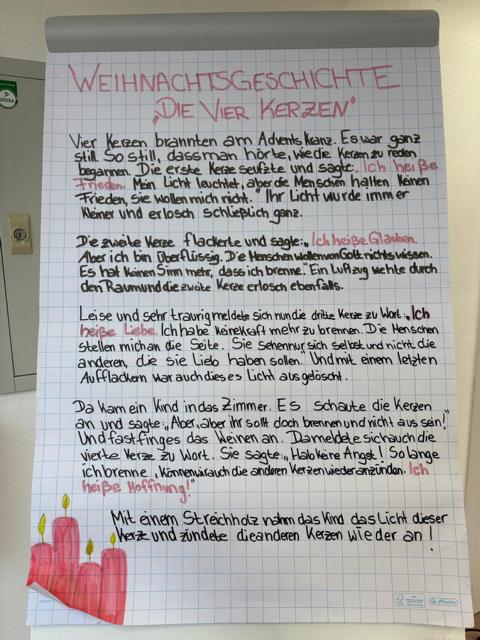 WEIHNACHTSGESCHICHTE
„DIE VIER KERZEN"
Vier Kerzen brannten am Adventskranz. Es war ganz
still. So still, dass man hörte, wie die Kerzen zu reden
begannen. Die erste Kerze seufzte und sagte: „Ich heiße
Frieden. Mein Licht leuchtet, aber die Menschen halten keinen
Frieden, sie wollen mich nicht." Ihr Licht wurde immer
kleiner und erlosch schließlich ganz.
Die zweite Kerze flackerte und sagte: „Ich heiße Glauben.
Aber ich bin überflüssig. Die Menschen wollen von Gott nichts wissen.
Es hat keinen Sinn mehr, dass ich brenne." Ein Luftzug wehte durch
den Raum und die zweite Kerze erlosch ebenfalls.
Leise und sehr traurig meldete sich nun die dritte Kerze zu Wort: „Ich
heiße Liebe. Ich habe keine Kraft mehr zu brennen. Die Menschen
stellen mich an die Seite. Sie sehen nur sich selbst und nicht die
anderen, die sie lieb haben sollen." Und mit einem letzten
Aufflackern war auch dieses Licht ausgelöscht.
Da kam ein Kind in das Zimmer. Es schaute die Kerzen
an und sagte: „Aber, aber ihr sollt doch brennen und nicht aus sein!"
Und fast fing es das Weinen an. Da meldete sich auch die
vierte Kerze zu Wort. Sie sagte: „Hab keine Angst! So lange
ich brenne, können wir auch die anderen Kerzen wieder anzünden. Ich
heiße Hoffnung!"
Mit einem Streichholz nahm das Kind das Licht dieser
Kerze und zündete die anderen Kerzen wieder an!
DEKRA